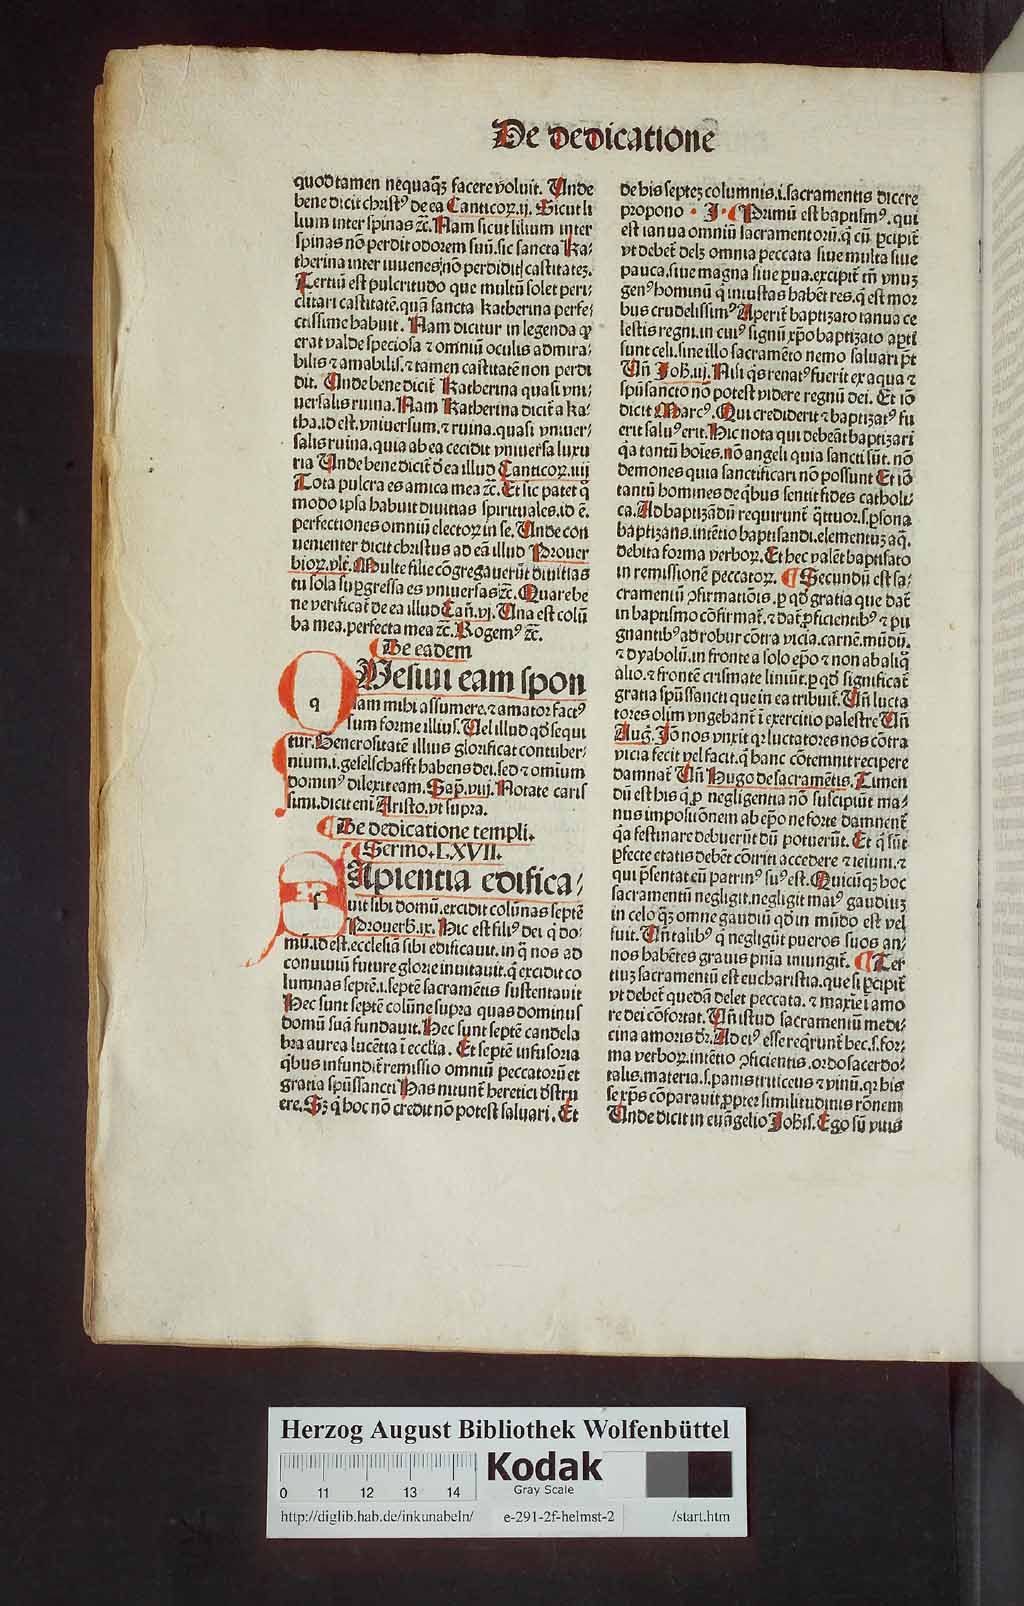 De dedicatione
quod tamen nequaq̃ꝫ facere voluit. Unde
bene dicit christꝰ de ea Canticoꝝ.ij. Sicut li
lium inter spinas ⁊c̃. Nam sicut lilium inter
spinas nõ perdit odorem suũ. sic sancta Ka⸗
therina inter iuuenes nõ perdidit castitateꝫ.
Tertiũ est pulcritudo que multũ solet peri⸗
clitari castitatẽ. quã sancta Katherina perfe⸗
ctissime habuit. Nam dicitur in legenda ꝙ
erat valde speciosa ⁊ omniũ oculis admira⸗
bilis ⁊ amabilis. ⁊ tamen castitatẽ non perdi
dit. Unde bene dicit̃ Katherina quasi vni⸗
uersalis ruina. Nam Katherina dicit̃ a Ka⸗
tha. id est. vniuersum. ⁊ ruina. quasi vniuer⸗
salis ruina. quia ab ea cecidit vniuersa luxu
ria Unde bene dicit̃ d̃ ea illud Canticoꝝ.iiij
Tota pulcra es amica mea ⁊c̃. Et sic patet q̃
modo ipsa habuit diuitias spirituales. id ẽ.
perfectiones omniũ electoꝝ in se. Unde con
uenienter dicit christus ad eã illud Prouer
bioꝝ.vlt̃. Multe filie cõgregauerũt diuitias
tu sola suꝑgressa es vniuersas ⁊c̃. Quare be
ne verificat̃ de ea illud Cañ.vj. Una est colũ
ba mea. perfecta mea ⁊c̃. Rogemꝰ ⁊c̃.
¶ De eadem
q Uesiui eam spon
sam mihi assumere. ⁊ amator factꝰ
sum forme illius. Uel illud qd̃ sequi
tur. Generositatẽ illius glorificat contuber⸗
nium .i. geselschafft habens dei. sed ⁊ omnium
dominꝰ dilexit eam. Sap̃.viij. Notate caris
simi. dicit eni Aristo. vt supra.
¶ De dedicatione templi.
¶ Sermo. LXVII.
s Apientia edifica⸗
uit sibi domũ. excidit colũnas septẽ
Prouerb̃.ix. Hic est filiꝰ dei q̃ do⸗
mũ. id est. ecclesiã sibi edificauit. in q̃ nos ad
conuiuiũ future glorie inuitauit. q̃ excidit co
lumnas septẽ .i. septẽ sacramẽtis sustentauit
Hec sunt septẽ colũne supra quas dominus
domũ suã fundauit. Hec sunt septẽ candela
bra aurea lucẽtia ĩ eccl̃ia. Et septẽ infusoria
q̃bus infundit̃ remissio omniũ peccatorũ et
gratia spũssancti Has nitunt̃ heretici d̃stru
ere. Sꝫ q̃ hoc nõ credit nõ potest saluari. Et
de his septeꝫ columnis .i. sacramentis dicere
propono · I · ¶ Primũ est baptismꝰ. qui
est ianua omniũ sacramentorũ. q̃ cũ ꝑcipit̃
vt debet̃ delꝫ omnia peccata siue multa siue
pauca. siue magna siue ꝑua. excipit̃ tñ vnuꝫ
genꝰ hominũ q̃ iniustas habẽt res. q̃ est mor
bus crudelissimꝰ Aperit̃ baptizato ianua ce
lestis regni. in cuiꝰ signũ xp̃o baptizato apti
sunt celi. sine illo sacramẽto nemo saluari p̃t
Uñ Joh̃.iij. Nisi q̃s renatꝰ fuerit ex aqua ⁊
spũsancto nõ potest videre regnũ dei. Et iõ
dicit Marcꝰ. Qui crediderit ⁊ baptizatꝰ fu
erit saluꝰ erit. Hic nota qui debeãt baptizari
q̃a tantũ hoĩes. nõ angeli quia sancti sũt. nõ
demones quia sanctificari nõ possunt Et iõ
tantũ homines de q̃bus sentit fides catholi⸗
ca. Ad baptizãdũ requirunt̃ q̃ttuor. s. ꝑsona
baptizans. intẽtio baptisandi. elementuꝫ aq̃.
debita forma verboꝝ. Et hec valẽt baptisato
in remissionẽ peccatoꝝ. ¶ Secundũ est sa⸗
cramentũ ꝯfirmatiõis. ꝑ qd̃ gratia que dat̃
in baptismo cõfirmat̃. ⁊ dat̃ ꝓficientibꝰ ⁊ pu
gnantibꝰ ad robur cõtra vicia. carnẽ. mũdũ.
⁊ dyabolũ. in fronte a solo ep̃o ⁊ non ab aliq̃
alio. ⁊ frontẽ crismate liniũt. ꝑ qd̃ significat̃
gratia spũssancti que in ea tribuit̃. Uñ lucta
tores olim vngebant̃ ĩ exercitio palestre Uñ
Aug̃. Iõ nos vnxit qꝛ luctatores nos cõtra
vicia fecit vel facit. q̃ hanc cõtemnit recipere
damnat̃ Uñ Hugo de sacramẽtis. Timen
dũ est his q̃ ꝑ negligentia nõ suscipiũt ma⸗
nus impositionẽ ab ep̃o ne forte damnent̃
q̃a festinare debuerũt dũ potuerũt. Et q̃ sũt
ꝑfecte etatis debẽt cõtriti accedere ⁊ ieiuni. ⁊
qui p̃sentat eũ patrinꝰ suꝰ est. Quicũqꝫ hoc
sacramentũ negligit. negligit maiꝰ gaudiuꝫ
in celo qꝫ omne gaudiũ qd̃ in mũdo est vel
fuit. Uñ talibꝰ q̃ negligũt pueros suos an⸗
nos habẽtes grauis pñia iniungit̃. ¶ Ter
tiuꝫ sacramentũ est eucharistia. que si ꝑcipit̃
vt debet̃ quedã delet peccata. ⁊ maxĩe ĩ amo
re dei cõfortat. Uñ istud sacramentũ medi⸗
cina amoris dr̃. Ad eiꝰ esse reqrunt̃ hec. s. for⸗
ma verboꝝ. intẽtio ꝯficientis. ordo sacerdo⸗
talis. materia. s. panis triticeus ⁊ vinũ. qꝛ his
se xp̃s cõparauit ꝓpter similitudinis rõnem
Unde dicit in euãgelio Joh̃is. Ego sũ vitis
Herzog August Bibliothek Wolfenbüttel
0 11 12 13 14
Kodak
Gray Scale
http://diglib.hab.de/inkunabeln/ e-291-2f-helmst-2 /start.htm